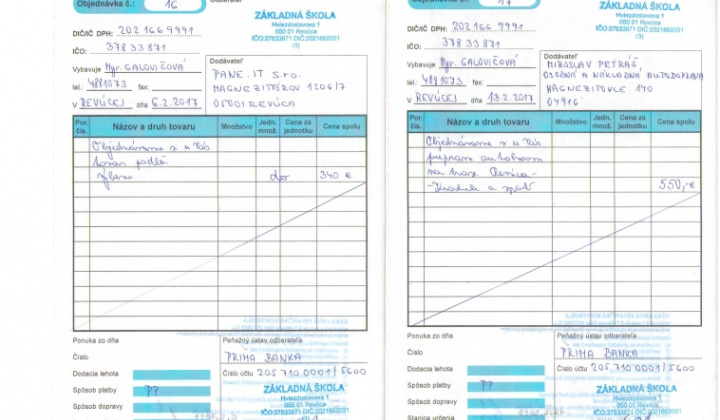 Objednávka č.: 16
Odberateľ
ZÁKLADNÁ ŠKOLA
Hviezdoslavova 1
050 01 Revúca
IČO:37833871 DIČ:2021669991
(3)
DIČ/IČ DPH: 202 166 9991
IČO: 378 33 871
Vybavuje Mgr. GALOVIČOVÁ
tel.: 4881073 fax:
V REVÚCEJ dňa 6.2.2017
Dodávateľ
PANE.IT s.r.o.
MAGNEZITÁROV 1206/7
05001 REVÚCA
Por. čís.
Názov a druh tovaru
Množstvo
Jedn. množ.
Cena za jednotku
Cena spolu
Objednávame si u Vás
tovar podľa
výberu do 340 €
Ponuka zo dňa
Číslo
Dodacia lehota
Spôsob platby PP
Spôsob dopravy
Peňažný ústav odberateľa
PRIMA BANKA
Číslo účtu 205 710 0001/5600
ZÁKLADNÁ ŠKOLA
Hviezdoslavova 1
050 01 Revúca
IČO:37833871 DIČ:2021669991
17
ZÁKLADNÁ ŠKOLA
Hviezdoslavova 1
050 01 Revúca
IČO:37833871 DIČ:2021669991
(3)
DIČ/IČ DPH: 202 166 9991
IČO: 378 33 871
Vybavuje Mgr. GALOVIČOVÁ
tel.: 4881073 fax:
V REVÚCEJ dňa 13.2.2017
Dodávateľ
MIROSLAV PETRÁŠ,
OSOBNÁ A NÁKLADNÁ AUTODOPRAVA
MAGNEZITOVCE 140
04916
Por. čís.
Názov a druh tovaru
Množstvo
Jedn. množ.
Cena za jednotku
Cena spolu
Objednávame si u Vás
prepravu autobusom
na trase Revúca -
a späť 550,-€
Ponuka zo dňa
Číslo
Dodacia lehota
Spôsob platby PP
Spôsob dopravy
Stanica určenia
Peňažný ústav odberateľa
PRIMA BANKA
Číslo účtu 205 710 0001/5600
ZÁKLADNÁ ŠKOLA
Hviezdoslavova 1
050 01 Revúca
IČO:37833871 DIČ:2021669991